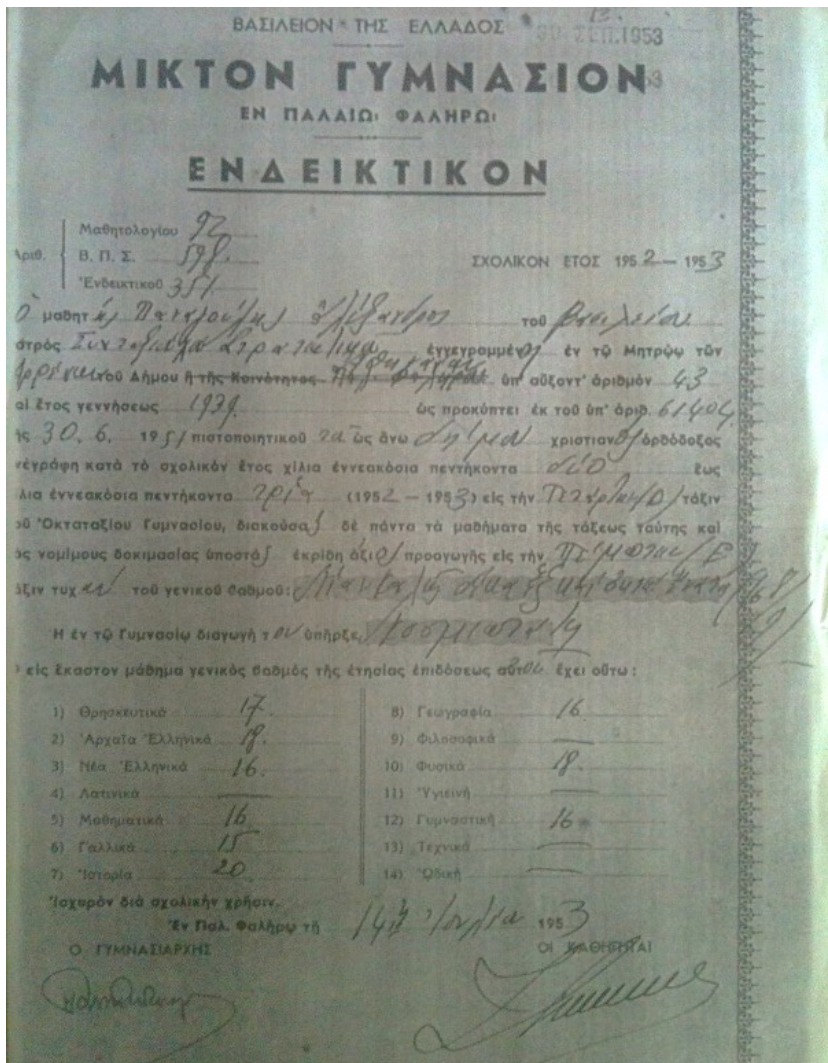 ΒΑΣΙΛΕΙΟΝ ΤΗΣ ΕΛΛΑΔΟΣ
ΣΕΠ.1953
ΜΙΚΤΟΝ ΓΥΜΝΑΣΙΟΝ
ΕΝ ΠΑΛΑΙΩι ΦΑΛΗΡΩι
ΕΝΔΕΙΚΤΙΚΟΝ
Μαθητολογίου 92
Αριθ. Β. Π. Σ. 598
Ἐνδεικτικοῦ 351
ΣΧΟΛΙΚΟΝ ΕΤΟΣ 1952 — 1953
Ὁ μαθητής Ἀλέξανδρος τοῦ Βασιλείου
ἐγγεγραμμένος ἐν τῷ Μητρῴῳ τῶν
τοῦ Δήμου ἢ τῆς Κοινότητος ὑπ' αὔξοντ' ἀριθμόν 43
αἱ ἔτος γεννήσεως 1939 ὡς προκύπτει ἐκ τοῦ ὑπ' ἀριθ. 61404
ῆς 30.6.1951 πιστοποιητικοῦ τοῦ ὡς ἄνω Δήμου χριστιανὸς ὀρθόδοξος
νεγράφη κατὰ τὸ σχολικὸν ἔτος χίλια ἐννεακόσια πεντήκοντα δύο ἕως
ίλια ἐννεακόσια πεντήκοντα τρία (1952 — 1953) εἰς τὴν Τετάρτην (Δ) τάξιν
οῦ Ὀκταταξίου Γυμνασίου, διακούσας δὲ πάντα τὰ μαθήματα τῆς τάξεως ταύτης καὶ
ὰς νομίμους δοκιμασίας ὑποστὰς ἐκρίθη ἄξιος προαγωγῆς εἰς τὴν Πέμπτην (Ε)
άξιν τυχὼν τοῦ γενικοῦ βαθμοῦ:
Ἡ ἐν τῷ Γυμνασίῳ διαγωγὴ του ὑπῆρξε Κοσμιωτάτη
εἰς ἕκαστον μάθημα γενικὸς βαθμὸς τῆς ἐτησίας ἐπιδόσεως αὐτοῦ ἔχει οὕτω :
1) Θρησκευτικά 17
2) Ἀρχαῖα Ἑλληνικά 18
3) Νέα Ἑλληνικά 16
4) Λατινικά —
5) Μαθηματικά 16
6) Γαλλικά 15
7) Ἱστορία 20
8) Γεωγραφία 16
9) Φιλοσοφικά —
10) Φυσικά 18
11) Ὑγιεινή —
12) Γυμναστική 16
13) Τεχνικά —
14) Ὠδική —
Ἰσχυρὸν διὰ σχολικὴν χρῆσιν.
Ἐν Παλ. Φαλήρῳ τῇ 14ῃ Ἰουλίου 1953
Ο ΓΥΜΝΑΣΙΑΡΧΗΣ
ΟΙ ΚΑΘΗΓΗΤΑΙ